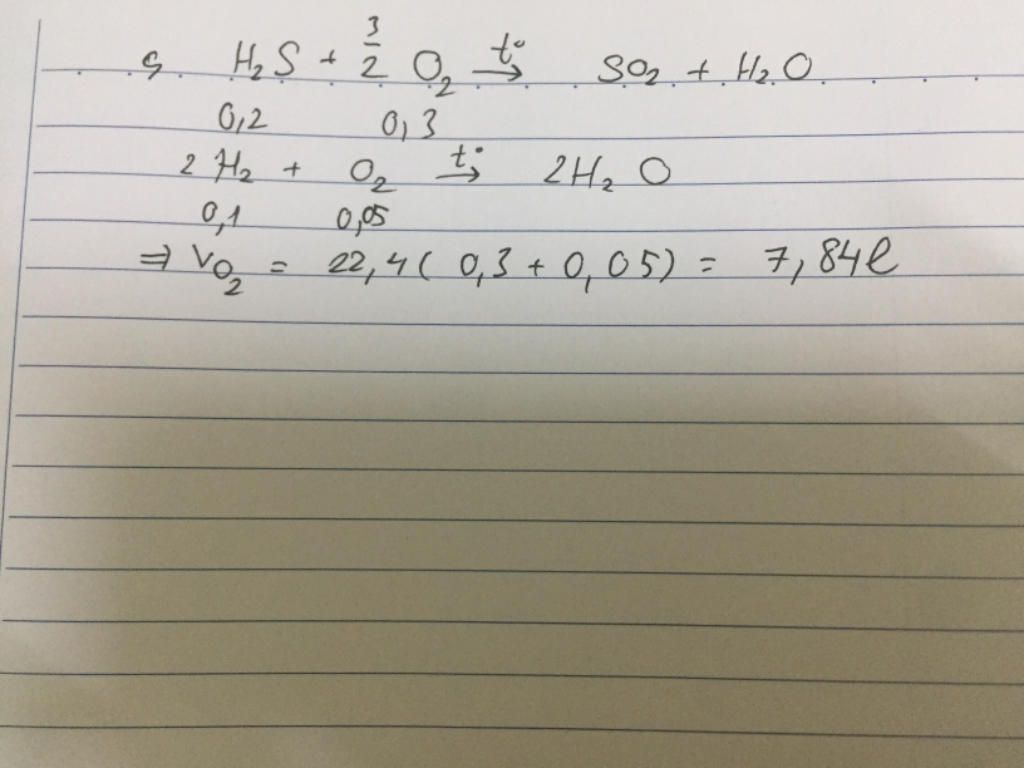 c. H₂S + 3/2 O₂ t°→ SO₂ + H₂O
0,2 0,3
2 H₂ + O₂ t°→ 2H₂O
0,1 0,05
⇒ V O₂ = 22,4 ( 0,3 + 0,05) = 7,84l